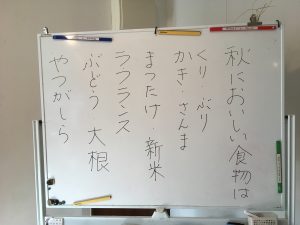 秋においしい食物は
くり・ぶり
かき・さんま
まつたけ 新米
ラフランス
ぶどう・大根
やつがしら